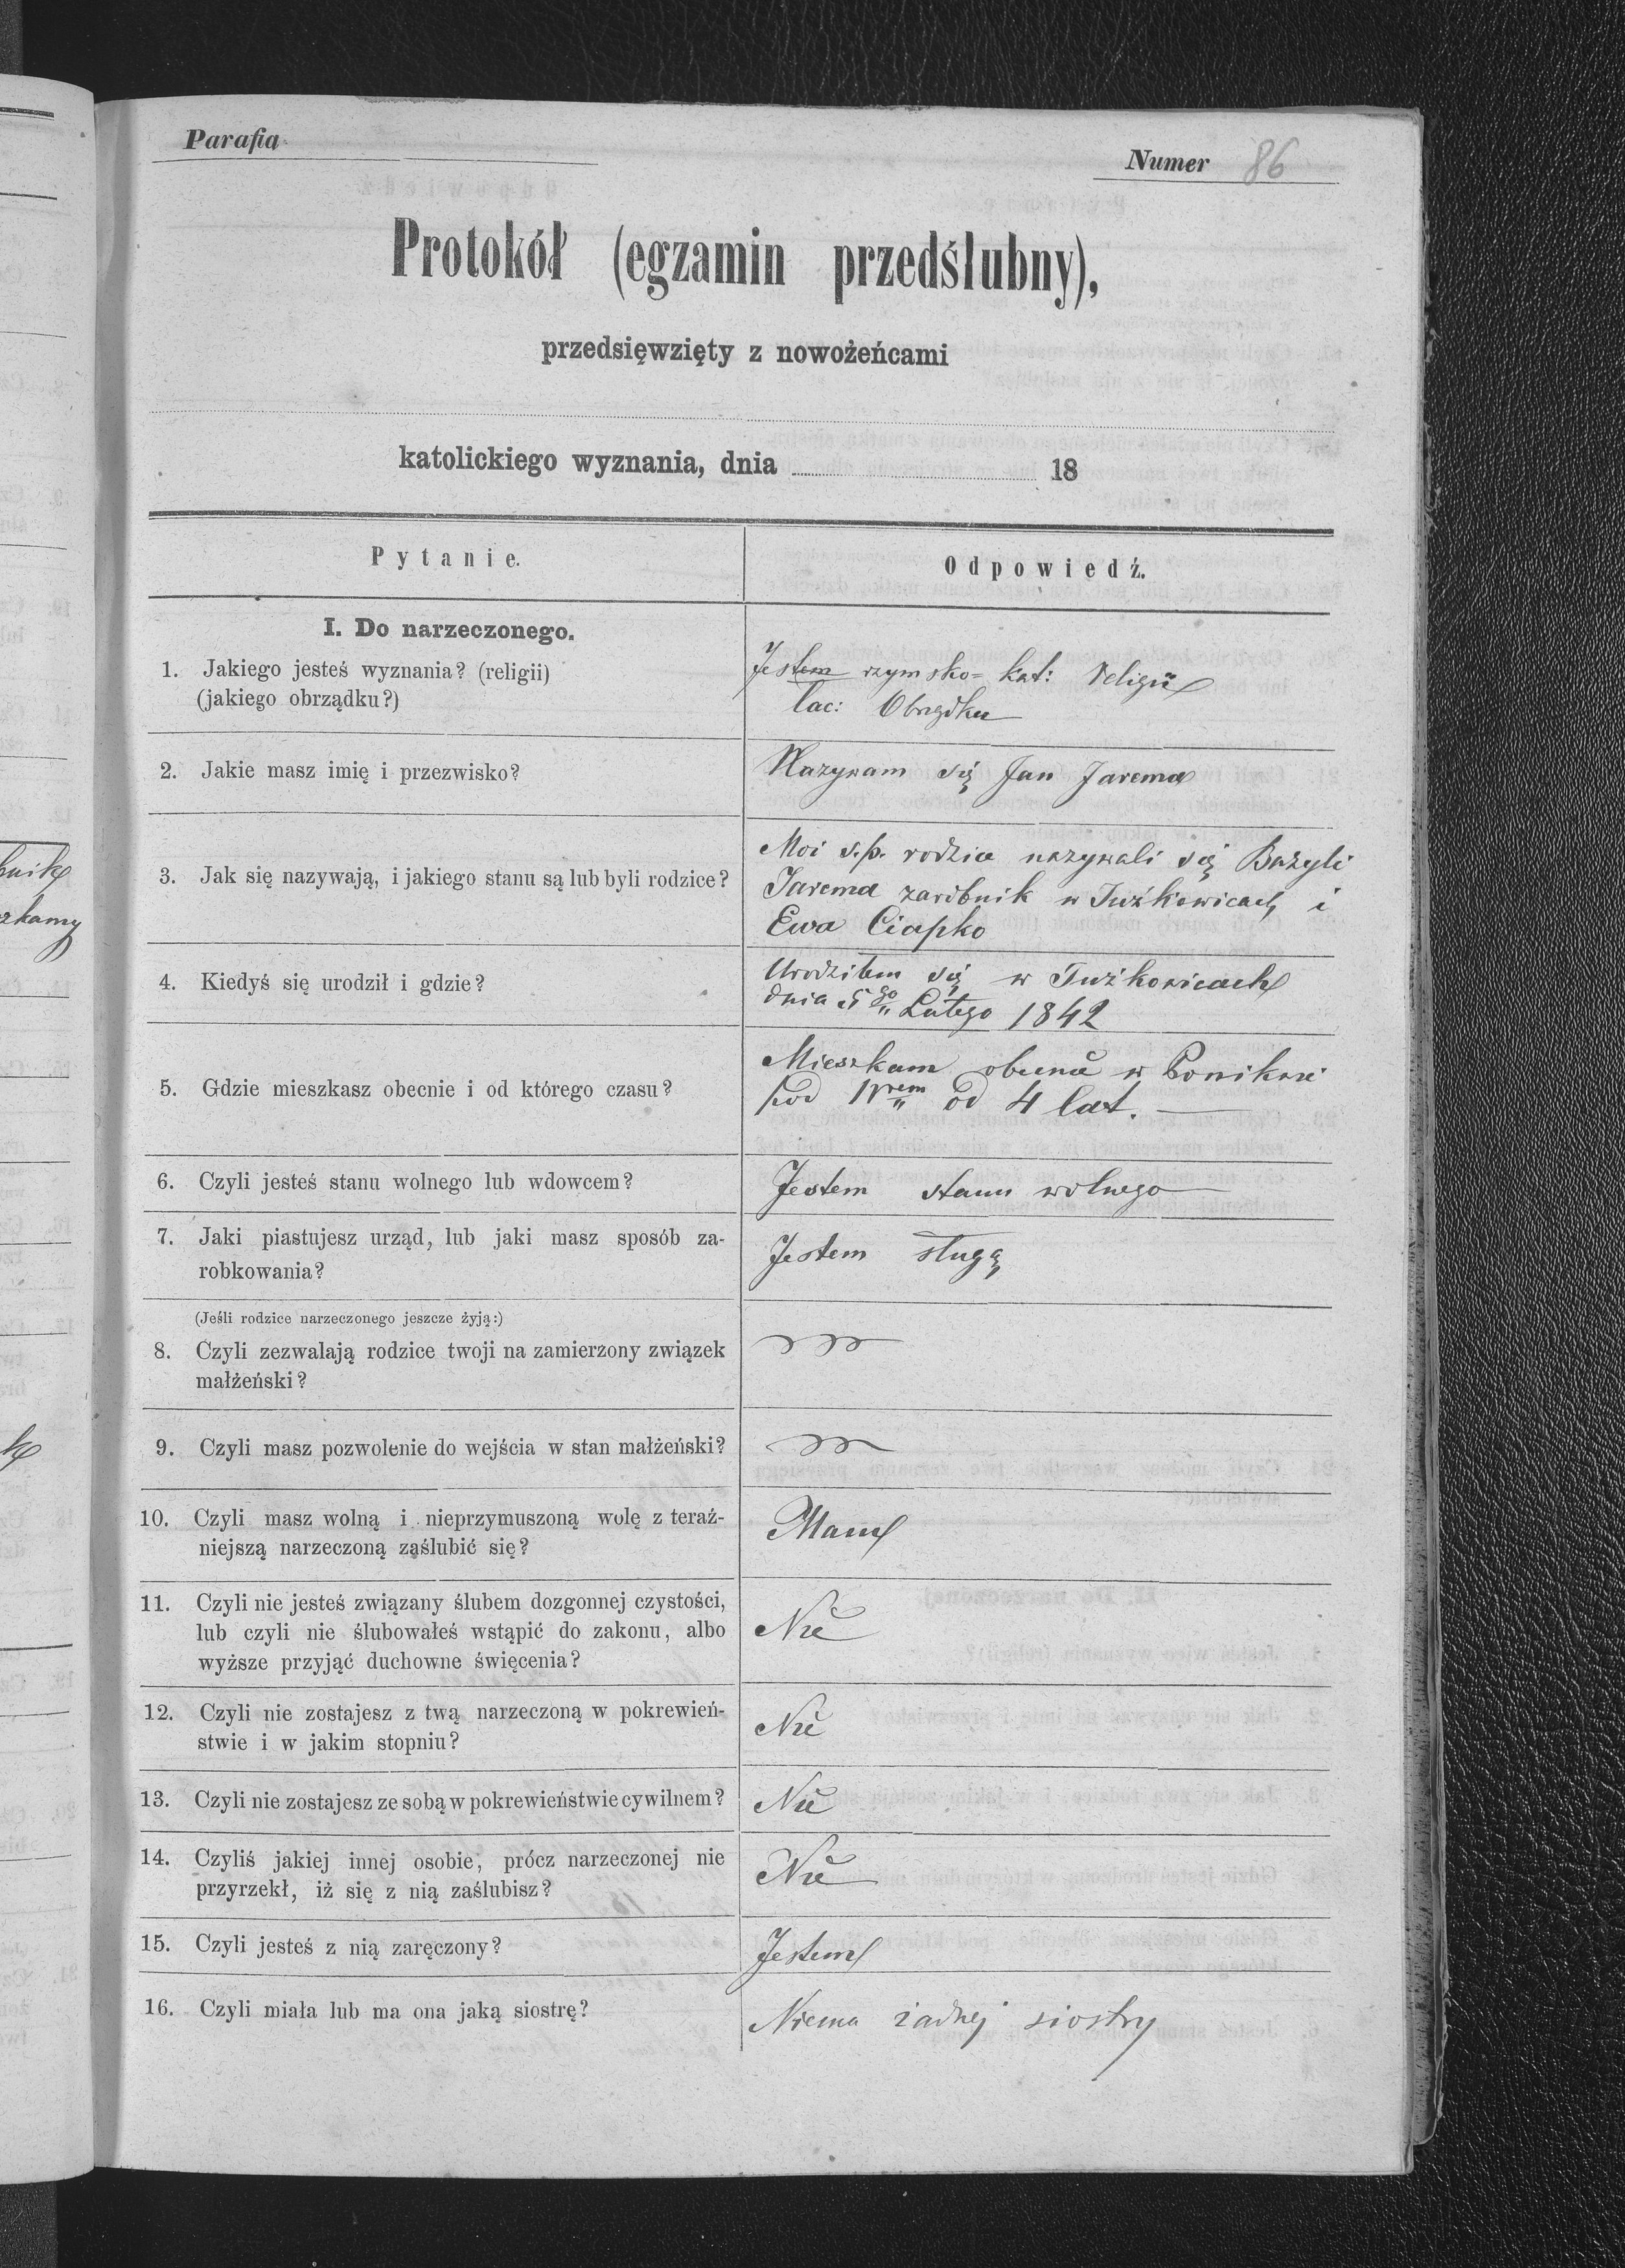 Parafia
Numer 86
Protokół (egzamin przedślubny),
przedsięwzięty z nowożeńcami
katolickiego wyznania, dnia 18
Pytanie. Odpowiedź.
I. Do narzeczonego.
1. Jakiego jesteś wyznania? (religii)
(jakiego obrządku?)
Jestem rzymsko=kat: religii
łac: Obrządku
2. Jakie masz imię i przezwisko?
Nazywam się Jan Jarema
3. Jak się nazywają, i jakiego stanu są lub byli rodzice?
Moi ś.p. rodzice nazywali się Bazyli
Jarema zarobnik w Tużkowicach i
Ewa Ciapko
4. Kiedyś się urodził i gdzie?
Urodziłem się w Tużkowicach
dnia 5go Lutego 1842
5. Gdzie mieszkasz obecnie i od którego czasu?
Mieszkam obecnie w
pod Nrem od 4 lat.
6. Czyli jesteś stanu wolnego lub wdowcem?
Jestem stanu wolnego
7. Jaki piastujesz urząd, lub jaki masz sposób za-
robkowania?
Jestem sługą
(Jeśli rodzice narzeczonego jeszcze żyją:)
8. Czyli zezwalają rodzice twoji na zamierzony związek
małżeński?
9. Czyli masz pozwolenie do wejścia w stan małżeński?
10. Czyli masz wolną i nieprzymuszoną wolę z teraź-
niejszą narzeczoną zaślubić się?
Mam
11. Czyli nie jesteś związany ślubem dozgonnej czystości,
lub czyli nie ślubowałeś wstąpić do zakonu, albo
wyższe przyjąć duchowne święcenia?
Nie
12. Czyli nie zostajesz z twą narzeczoną w pokrewień-
stwie i w jakim stopniu?
Nie
13. Czyli nie zostajesz ze sobą w pokrewieństwie cywilnem?
Nie
14. Czyliś jakiej innej osobie, prócz narzeczonej nie
przyrzekł, iż się z nią zaślubisz?
Nie
15. Czyli jesteś z nią zaręczony?
Jestem
16. Czyli miała lub ma ona jaką siostrę?
Niema żadnej siostry